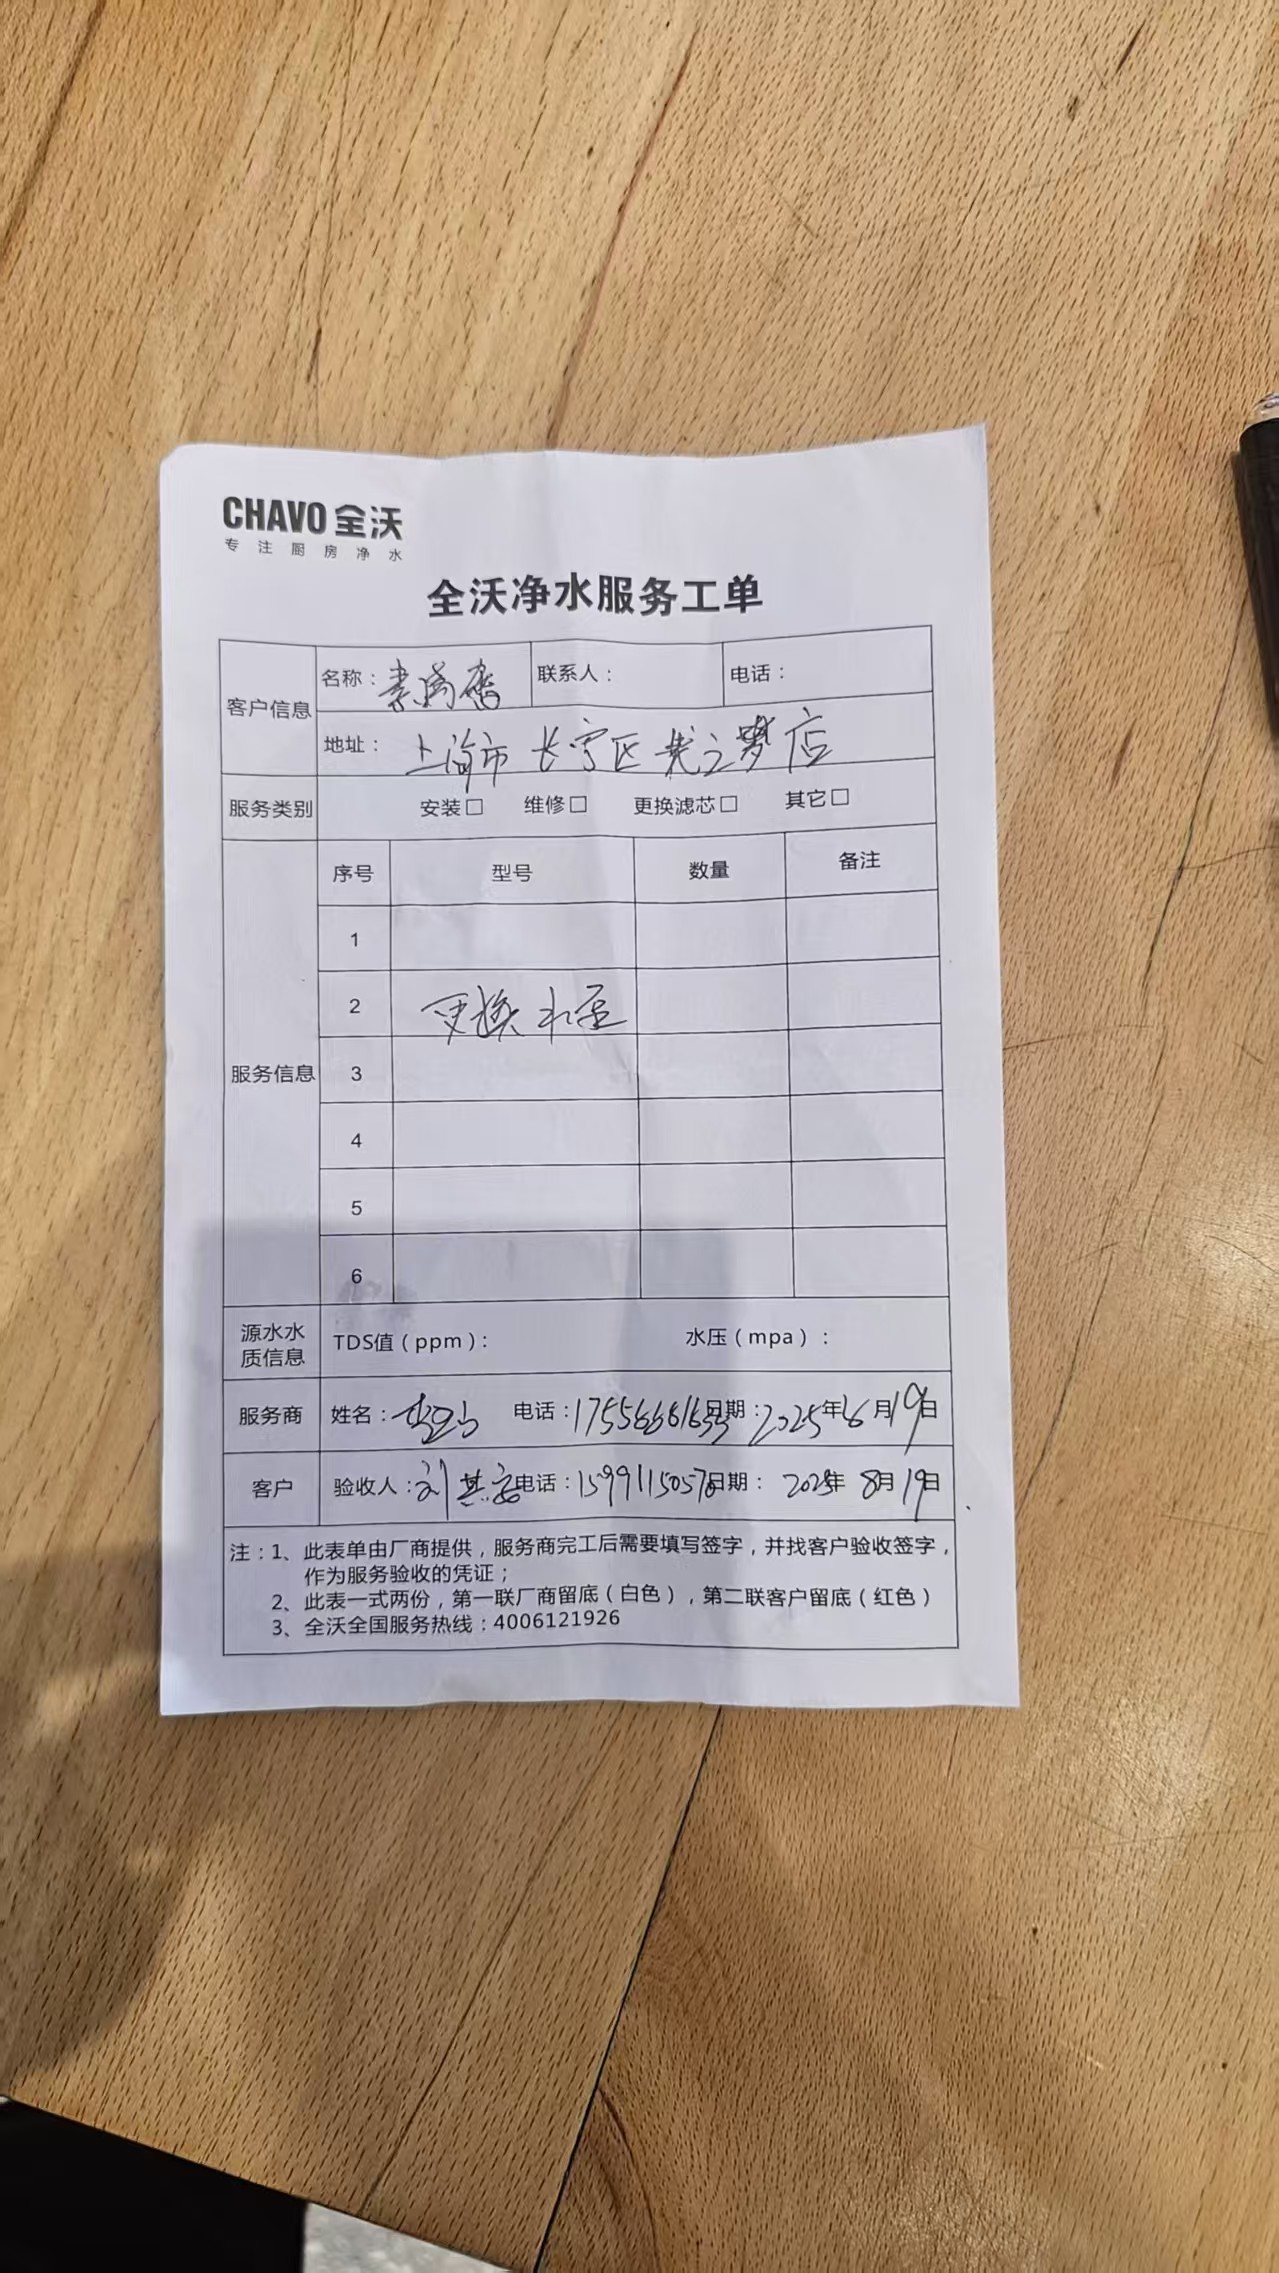 CHAVO 全沃
专注厨房净水
全沃净水服务工单
客户信息 名称： 联系人： 电话：
地址： 上海市 长宁区 龙之梦店
服务类别 安装□ 维修□ 更换滤芯□ 其它□
服务信息 序号 型号 数量 备注
1
2 更换水泵
3
4
5
6
源水水质信息 TDS值（ppm）： 水压（mpa）：
服务商 姓名： 电话： 日期：2025年8月19日
客户 验收人：刘 电话：15991150578 日期： 2025年 8月19日
注：1、此表单由厂商提供，服务商完工后需要填写签字，并找客户验收签字，
作为服务验收的凭证；
2、此表一式两份，第一联厂商留底（白色），第二联客户留底（红色）
3、全沃全国服务热线：4006121926